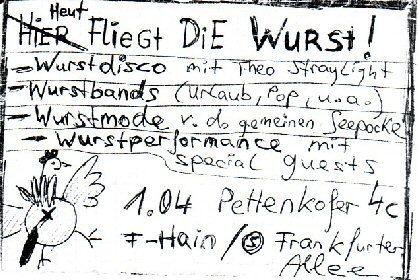 Heut
HiER FLiEGT DiE WURST!
- Wurstdisco mit Theo Straylight
- Wurstbands (Urlaub, Pop, u.a.)
- Wurstmode v. d. gemeinen Seepocke
- Wurstperformance mit
special guests
1.04 Pettenkofer 4c
F-Hain / S Frankfurter
Allee